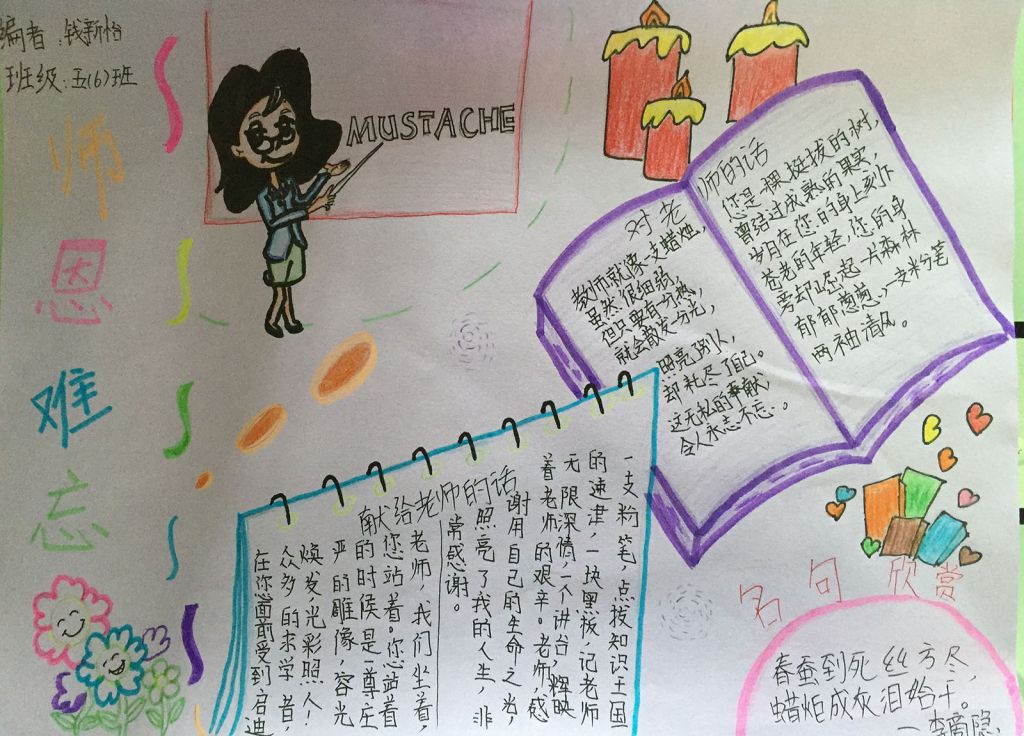 编者:钱新怡
班级:五(6)班
师恩难忘
MUSTACHE
对老师的话
教师就像一支蜡烛,
虽然很细弱,
但只要有一分热,
就会散发一分光,
照亮了别人,
却札尽了自己。
这无私的奉献,
令人永志不忘。
您是一棵挺拔的树,
曾结过成熟的果实,
岁月在您的身上刻下
苍老的年轻,您的身
旁却崛起一片森林
郁郁葱葱,一支米分笔
两袖清风。
献给老师的话
一支粉笔,点拨知识王国
的速津,一块黑板,记老师
无限深情,一个讲台,辉映
着老师的艰辛。老师,感
谢用自己的生命之光,
照亮了我的人生,非
常感谢。
老师,我们坐着,
您站着。您站着
的时候是一尊庄
严的雕像,容光
焕发,光彩照人!
众多的求学者,
在你面前受到启迪
名句欣赏
春蚕到死丝方尽,
蜡炬成灰泪始干。
—李商隐